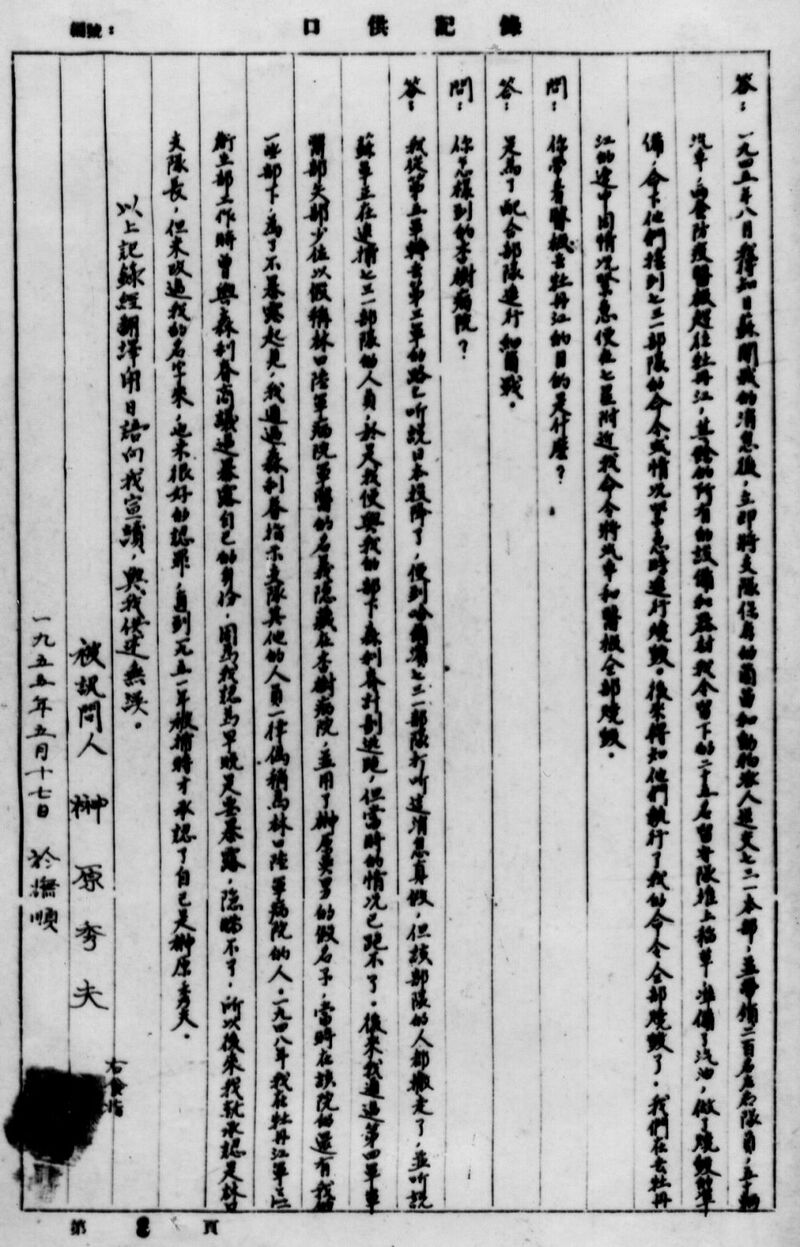 口供記錄
編號：
答：一九四五年八月獲知日蘇開戰的消息後，立即將支隊保存的菌苗和動物派人送交七三一本部，並帶領二百名左右隊員，五輛
汽車，向登防疫醫療趕往牡丹江，其餘的所有的設備和器材我令留下的二十五名留守隊堆上稻草準備了汽油，做了燒毀的準
備，令下他們接到七三一部隊的命令或情況緊急時進行燒毀。後來得知他們執行了我的命令全部燒毀了。我們在去牡丹
江的途中因情況緊急便在七星附近我命令將汽車和醫機全部燒毀。
問：你帶着醫機去牡丹江的目的是什麼？
答：是為了配合部隊進行細菌戰。
問：你怎樣到的李樹病院？
答：我從第五軍轉去第三軍的路上听說日本投降了，便到哈爾濱七三一部隊打听這消息真假，但該部隊的人都撤走了，並听說
蘇軍正在追捕七三一部隊的人員，於是我便與我的部下森利春計劃逃跑，但當時的情況已跑不了。後來我通過第四軍軍
醫部大部少佐以假稱林口陸軍病院軍醫的名義隱藏在李樹病院，並用了榊原英男的假名子，當時在該院的還有我的
一些部下，為了不暴露起見，我通過森利春指示支隊其他的人員一律偽稱為林口陸軍病院的人。一九四八年我在牡丹江軍區
衛生部工作時曾與森利春商議過暴露自己的身份，因為我認為早晚是要暴露，隱瞞不了，所以後來我就承認是林口
支隊長，但未改過我的名字來，也未很好的認罪，直到一九五一年被捕時才承認了自己是榊原秀夫。
以上記錄經翻譯用日語向我宣讀，與我供述無誤。
被訊問人 榊原秀夫
右食指
一九五五年五月十七日 於撫順
第 頁